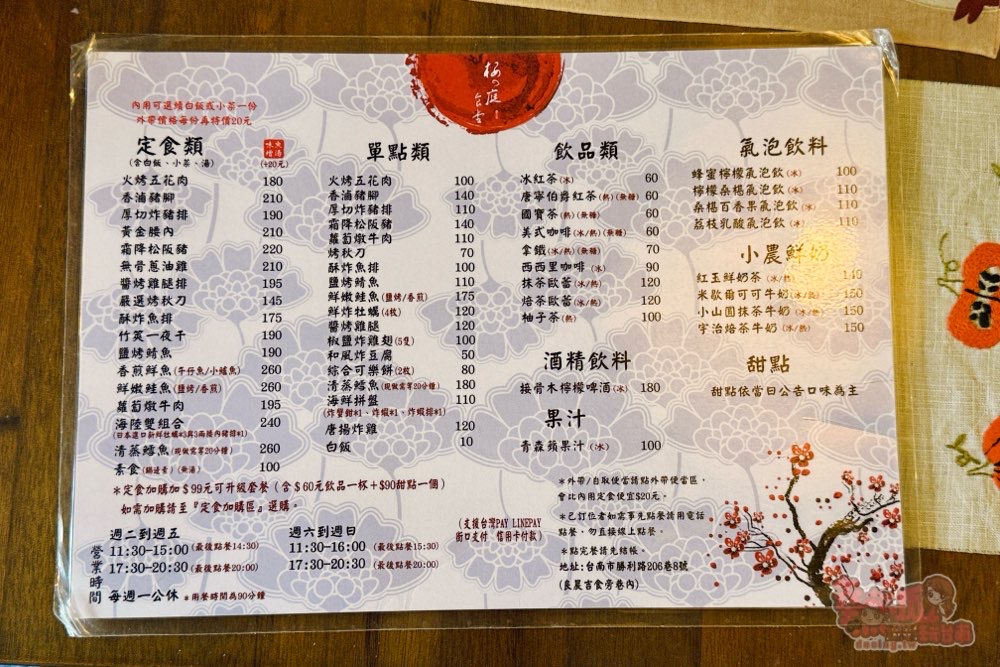 桜の庭
食堂
內用可選擇白飯或小菜一份
外帶價格每份再特價20元
定食類
(含白飯、小菜、湯)
味噌
(+20元)
火烤五花肉 180
香滷豬腳 210
厚切炸豬排 190
黃金腰內 210
霜降松阪豬 220
無骨蔥油雞 210
醬烤雞腿排 195
嚴選烤秋刀 145
酥炸魚排 175
竹筴一夜干 190
鹽烤鯖魚 190
香煎鮮魚(午仔魚/小鱸魚) 260
鮮嫩鮭魚(鹽烤/香煎) 260
蘿蔔燉牛肉 195
海陸雙組合 240
(日本進口新鮮牡蠣*3與3兩腰內豬排*1)
清蒸鱈魚(現做需等20分鐘) 260
素食(鍋邊素)(無湯) 100
單點類
火烤五花肉 100
香滷豬腳 140
厚切炸豬排 110
霜降松阪豬 140
蘿蔔燉牛肉 110
烤秋刀 70
酥炸魚排 100
鹽烤鯖魚 110
鮮嫩鮭魚(鹽烤/香煎) 175
鮮炸牡蠣(4枚) 120
醬烤雞腿 120
椒鹽炸雞翅(5隻) 100
和風炸豆腐 50
綜合可樂餅(2枚) 80
清蒸鱈魚(現做需等20分鐘) 180
海鮮拼盤 110
(炸蟹鉗*1、炸蝦*1、炸蝦排*1)
唐揚炸雞 120
白飯 10
飲品類
冰紅茶(冰) 60
唐寧伯爵紅茶(熱)(無糖) 60
國寶茶(熱)(無糖) 60
美式咖啡(冰/熱)(無糖) 60
拿鐵(冰/熱)(無糖) 70
西西里咖啡(冰) 90
抹茶歐蕾(冰/熱) 120
焙茶歐蕾(冰/熱) 120
柚子茶(熱) 100
酒精飲料
接骨木檸檬啤酒(冰) 180
果汁
青森蘋果汁(冰) 100
氣泡飲料
蜂蜜檸檬氣泡飲(冰) 100
檸檬桑椹氣泡飲(冰) 110
桑椹百香果氣泡飲(冰) 110
荔枝乳酸氣泡飲(冰) 110
小農鮮奶
紅玉鮮奶茶(冰/熱) 140
米歇爾可可牛奶(冰/熱) 150
小山園抹茶牛奶(冰/熱) 150
宇治焙茶牛奶(冰/熱) 150
甜點
甜點依當日公告口味為主
*定食加購加$99元可升級套餐(含$60元飲品一杯+$90甜點一個)
如需加購請至『定食加購區』選購。
營業時間
週二到週五
11:30-15:00(最後點餐14:30)
17:30-20:30(最後點餐20:00)
週六到週日
11:30-16:00(最後點餐15:30)
17:30-20:30(最後點餐20:00)
每週一公休 *用餐時間為90分鐘
(支援台灣PAY LINEPAY
街口支付 信用卡付款)
*外帶/自取便當請點外帶便當區,
會比內用定食便宜$20元。
*已訂位者如需事先點餐請用電話
點餐、勿直接線上點餐。
*點完餐請先結帳。
地址:台南市勝利路206巷8號
(良農吉食旁巷內)
dewing.tw